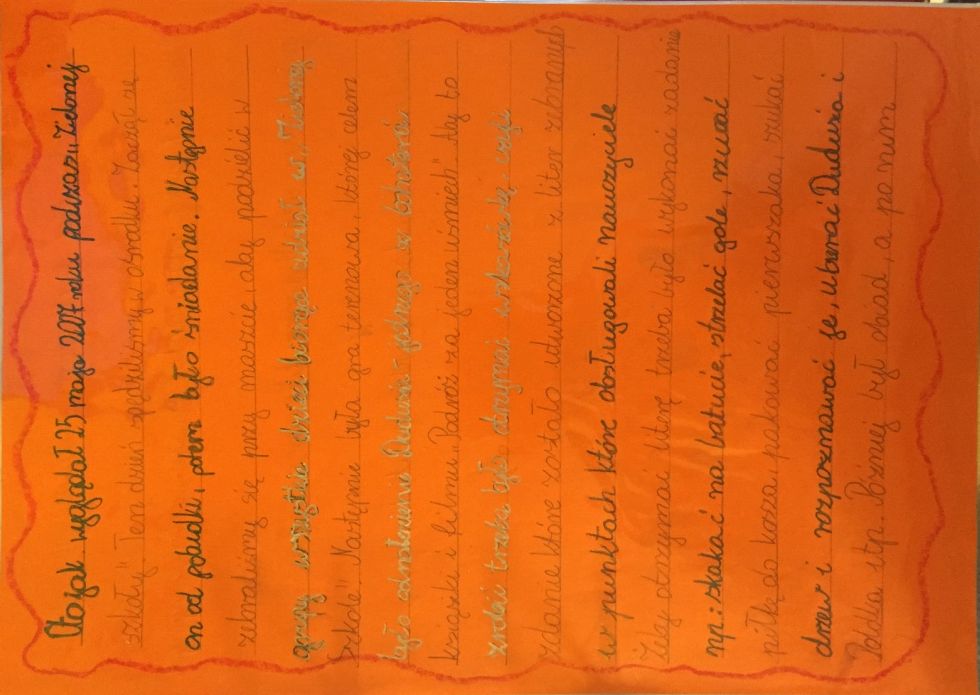 Oto jak wyglądał 25 maja 2017 roku podczas „Zielonej
szkoły". Ten dzień spędziliśmy w ośrodku. Zaczął się
on od pobudki, potem było śniadanie. Następnie
zebraliśmy się przy maszcie aby podzielić w
grupy wszystkie dzieci biorące udział w „Zielonej
Szkole". Następnie była gra terenowa, której celem
było odnalezienie Dudusia jednego w bohaterów
książki i filmu „Podróż za jeden uśmiech". Aby to
zrobić trzeba było otrzymać wskazówkę, czyli
zdanie które zostało utworzone z liter zebranych
w punktach które obsługiwali nauczyciele
Żeby otrzymać literę trzeba było wykonać zadanie
np.: skakać na batucie, strzelać gole, rzucać
piłką do kosza, pakować pierwszaka, szukać
drzew i rozpoznawać je, ubierać Dudusia i
Poldka itp. Później był obiad, a po nim